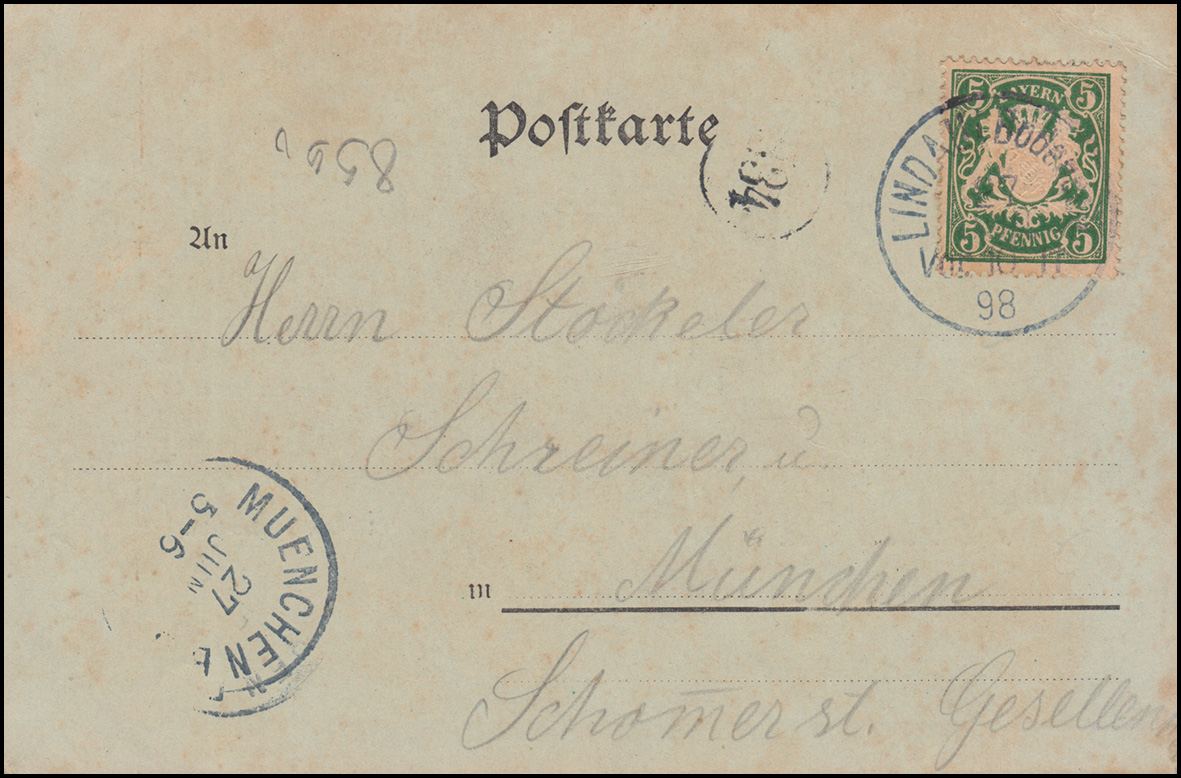 Postkarte
BAYERN
5 5
PFENNIG
5 5
LINDAU
VIII 10 11
98
34
854
An
Herrn Stöckeler
Schreiner, u.
in München
Schomerst. Gesellen
MUENCHEN
27
JUN
5-6